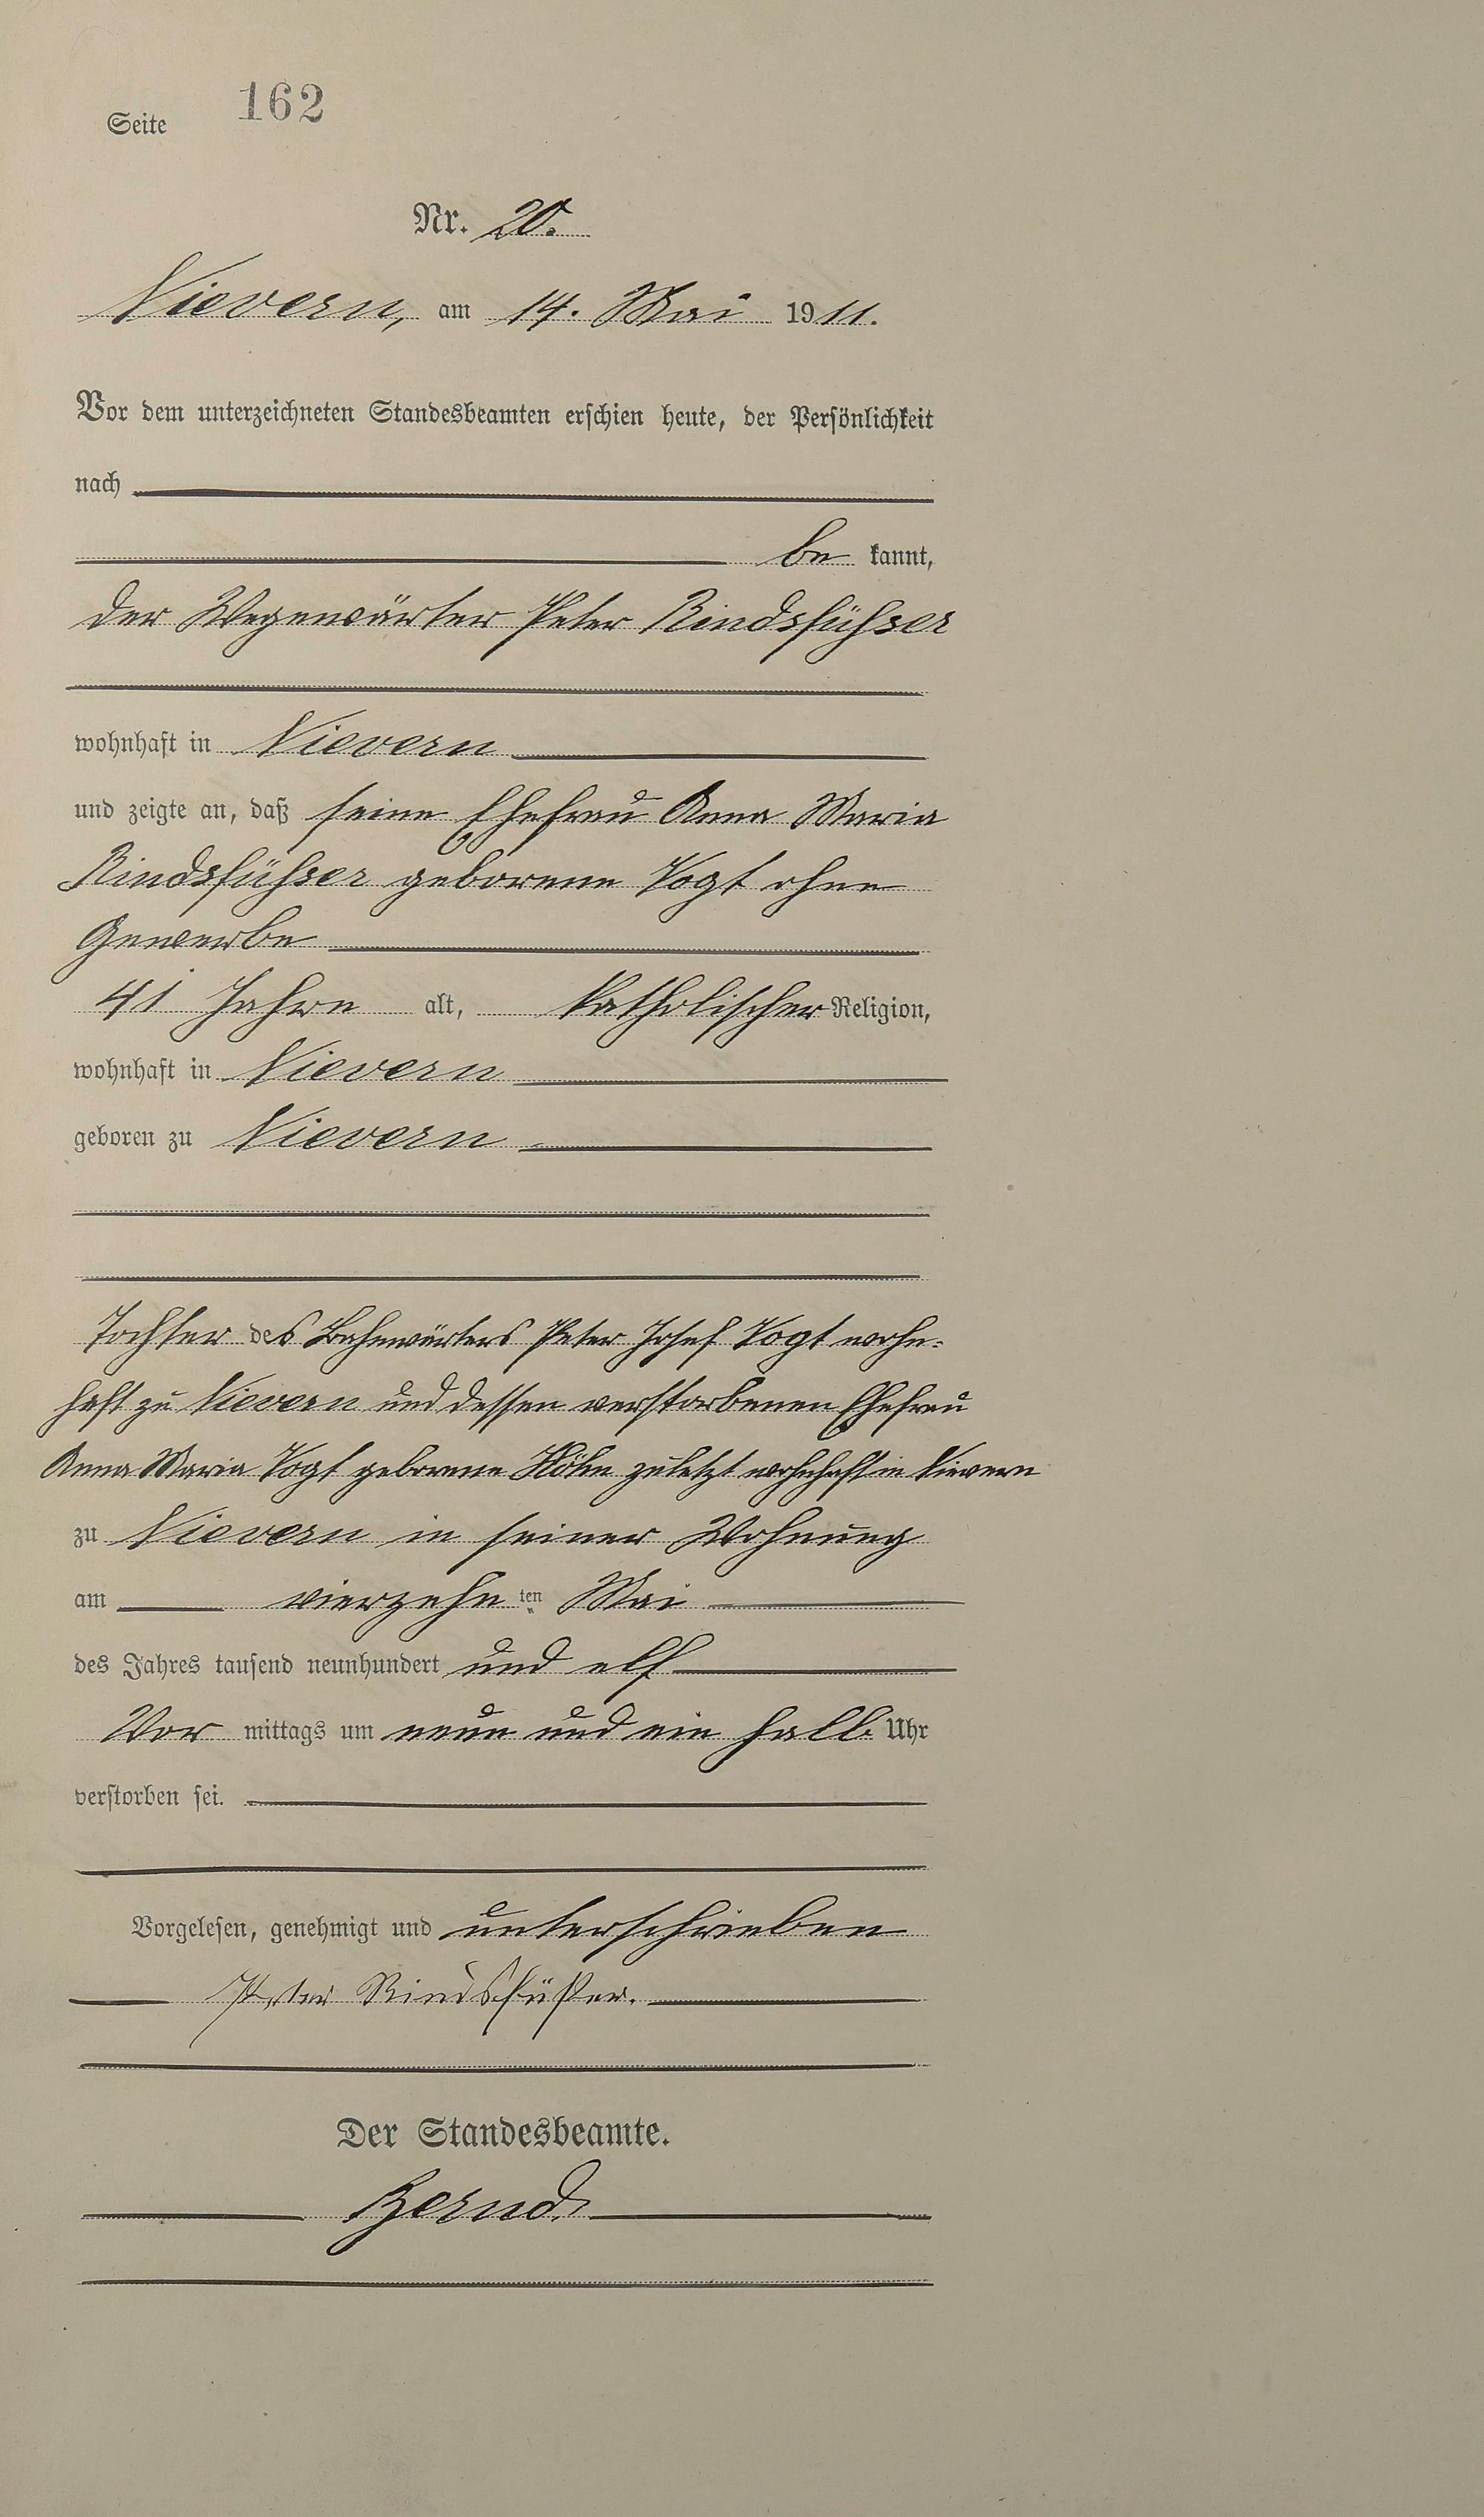 Seite 162
Nr. 20.
Nievern, am 14. Mai 1911.
Vor dem unterzeichneten Standesbeamten erschien heute, der Persönlichkeit
nach
be kannt,
der Wegewärter Peter Rindsfühser
wohnhaft in Nievern
und zeigte an, daß seine Ehefrau Anna Maria
Rindsfühser geborene Vogt ohne
Gewerbe
41 Jahre alt, katholischer Religion,
wohnhaft in Nievern
geboren zu Nievern
Tochter des Bahnwärters Peter Josef Vogt wohn-
haft zu Nievern und dessen verstorbenen Ehefrau
Anna Maria Vogt geborene zuletzt wohnhaft in Nievern
zu Nievern in seiner Wohnung
am vierzehn ten Mai
des Jahres tausend neunhundert und elf
Vor mittags um neun und ein halb Uhr
verstorben sei.
Vorgelesen, genehmigt und unterschrieben
Peter Rindsfüßer.
Der Standesbeamte.